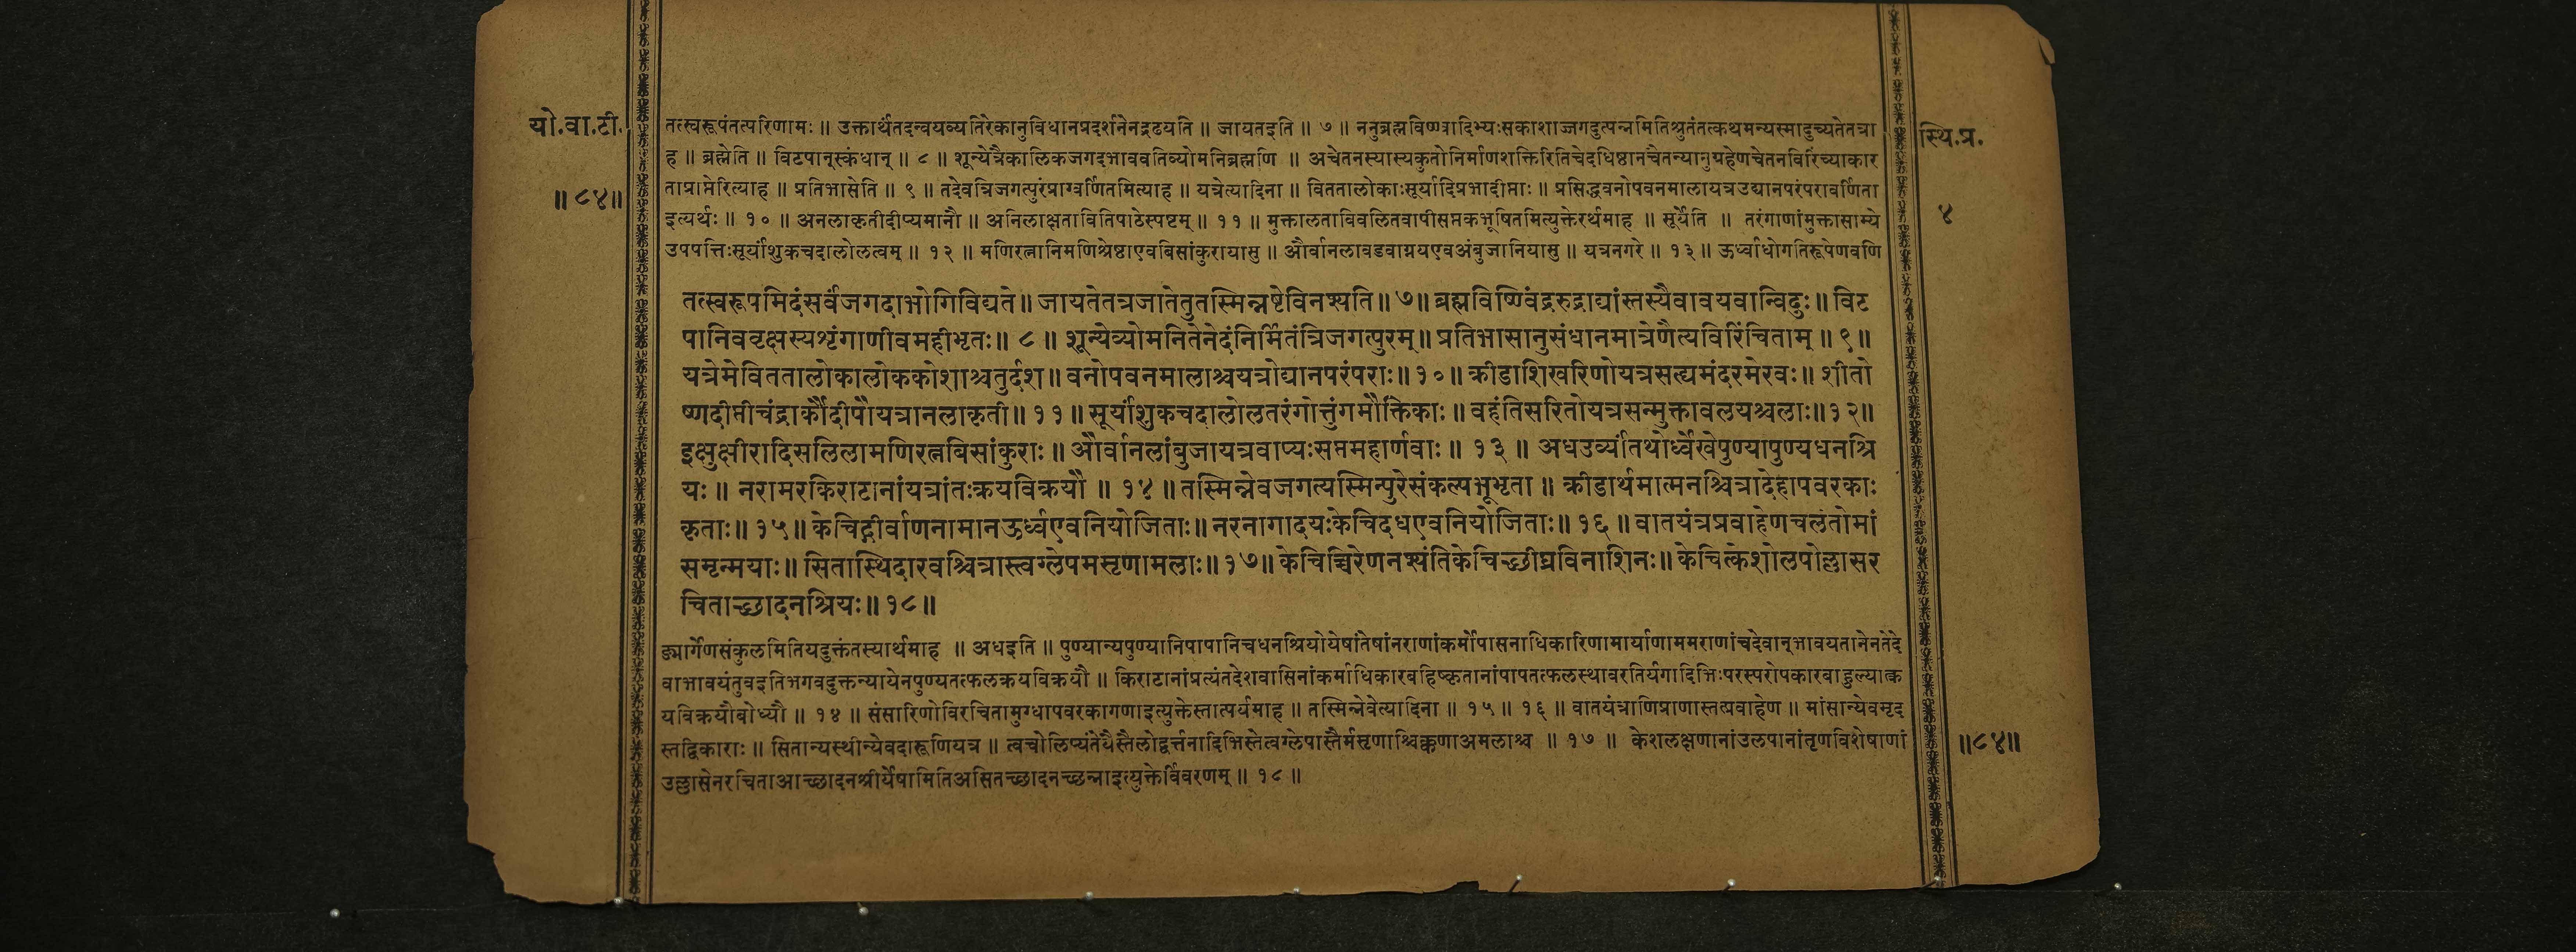 यो.वा.टी.
॥८४॥
तत्स्वरूपंतत्परिणामः ॥ उक्तार्थेतदन्वयव्यतिरेकानुविधानप्रदर्शनेनद्रढयति ॥ जायतइति ॥ ७ ॥ ननुब्रह्मविष्ण्वादिभ्यःसकाशाज्जगदुत्पन्नमितिश्रुतंतत्कथमन्यस्मादुच्यतेतत्रा
ह ॥ ब्रह्मेति ॥ विटपान्स्कंधान् ॥ ८ ॥ शून्येत्रैकालिकजगद्भाववतिव्योमनिब्रह्मणि ॥ अचेतनस्यास्यकुतोनिर्माणशक्तिरितिचेदधिष्ठानचैतन्यानुग्रहेणचेतनविरिंच्याकार
ताप्राप्तेरित्याह ॥ प्रतिभासेति ॥ ९ ॥ तदेवत्रिजगत्पुरंप्राग्वर्णितमित्याह ॥ यत्रेत्यादिना ॥ वितताल‍ोकाःसूर्यादिप्रभादीप्ताः ॥ प्रसिद्धवनोपवनमालायत्रउद्यानपरंपरावर्णिता
इत्यर्थः ॥ १० ॥ अनलाकृतीदीप्यमानौ ॥ अनिलाक्षतावितिपाठेस्पष्टम् ॥ ११ ॥ मुक्तालताविवलितवापीसप्तकभूषितमित्युक्तेरर्थमाह ॥ सूर्येति ॥ तरंगाणांमुक्तासाम्ये
उपपत्तिःसूर्यांशुकचदालोलत्वम् ॥ १२ ॥ मणिरत्नानिमणिश्रेष्ठाएवबिसांकुरायासु ॥ और्वानलावडवाग्नयएवअंबुजानियासु ॥ यत्रनगरे ॥ १३ ॥ ऊर्ध्वाधोगतिरूपेणवणि
तत्स्वरूपमिदंसर्वंजगदाभोगिविद्यते ॥ जायतेतत्रजातेतुतस्मिन्नष्टेविनश्यति ॥ ७ ॥ ब्रह्मविष्ण्विंद्ररुद्राद्यांस्तस्यैवावयवान्विदुः ॥ विट
पानिववृक्षस्यशृंगाणीवमहीभृतः ॥ ८ ॥ शून्येव्योमनितेनेदंनिर्मितंत्रिजगत्पुरम् ॥ प्रतिभासानुसंधानमात्रेणैत्यविरिंचिताम् ॥ ९ ॥
यत्रेमेवितताल‍ोकालोककोशाश्चतुर्दश ॥ वनोपवनमालाश्चयत्रोद्यानपरंपराः ॥ १० ॥ क्रीडाशिखरिणोयत्रसह्यमंदरमेरवः ॥ शीतो
ष्णदीप्तीचंद्रार्कौदीपौयत्रानलाकृती ॥ ११ ॥ सूर्यांशुकचदालोलतरंगोत्तुंगमौक्तिकाः ॥ वहंतिसरितोयत्रसन्मुक्तावलयश्चलाः ॥ १२ ॥
इक्षुक्षीरादिसलिलामणिरत्नबिसांकुराः ॥ और्वानलांबुजायत्रवाप्यःसप्तमहार्णवाः ॥ १३ ॥ अधउर्व्यांतथोर्ध्वेखेपुण्यापुण्यधनश्रि
यः ॥ नरामरकिराटानांयत्रांतःक्रयविक्रयौ ॥ १४ ॥ तस्मिन्नेवजगत्यस्मिन्पुरेसंकल्पभूभृता ॥ क्रीडार्थमात्मनश्चित्रादेहापवरकाः
कृताः ॥ १५ ॥ केचिद्गीर्वाणनामानऊर्ध्वएवनियोजिताः ॥ नरनागादयःकेचिदधएवनियोजिताः ॥ १६ ॥ वातयंत्रप्रवाहेणचलंतोमां
समृन्मयाः ॥ सितास्थिदारवश्चित्रास्त्वग्लेपमसृणामलाः ॥ १७ ॥ केचिच्चिरेणनश्यंतिकेचिच्छीघ्रविनाशिनः ॥ केचित्केशोलपोल्लासर
चिताच्छादनश्रियः ॥ १८ ॥
ङ्मार्गेणसंकुलमितियदुक्तंतस्यार्थमाह ॥ अधइति ॥ पुण्यान्यपुण्यानिपापानिचधनश्रियोयेषांतेषांनराणांकर्मोपासनाधिकारिणामार्याणाममराणांचदेवान्भावयतानेनतेदे
वाभावयंतुवइतिभगवदुक्तन्यायेनपुण्यतत्फलक्रयविक्रयौ ॥ किराटानांप्रत्यंतदेशवासिनांकर्माधिकारबहिष्कृतानांपापतत्फलस्थावरतिर्यगादिभिःपरस्परोपकारबाहुल्यात्क्र
यविक्रयौबोध्यौ ॥ १४ ॥ संसारिणोविरचितामुग्धापवरकागणाइत्युक्तेस्तात्पर्यमाह ॥ तस्मिन्नेवेत्यादिना ॥ १५ ॥ १६ ॥ वातयंत्राणिप्राणास्तत्प्रवाहेण ॥ मांसान्येवमृद
स्तद्विकाराः ॥ सितान्यस्थीन्येवदारूणियत्र ॥ त्वचोलिप्यंतेयैस्तैलोद्वर्त्तनादिभिस्तेत्वग्लेपास्तैर्मसृणाश्चिक्कणाअमलाश्च ॥ १७ ॥ केशलक्षणानांउलपानांतृणविशेषाणां
उल्लासेनरचिताआच्छादनश्रीर्येषामितिअसितच्छादनच्छन्नाइत्युक्तेर्विवरणम् ॥ १८ ॥
स्थि.प्र.
४
॥८४॥